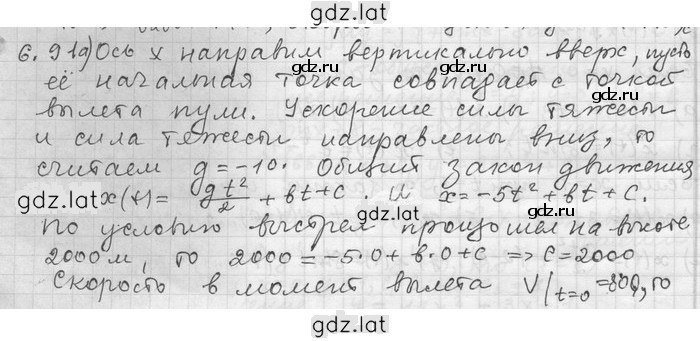 gdz.lat
6.91 а) Ось x направим вертикально вверх, пусть
её начальная точка совпадает с точкой
вылета пули. Ускорение силы тяжести
и сила тяжести направлены вниз, то
считаем g = -10. Общий закон движения
gdz.lat x(t) = gt²/2 + bt + c. И x = -5t² + bt + c.
gdz.lat
По условию выстрел произошел на высоте
2000 м, то 2000 = -5·0 + b·0 + c => c = 2000
Скорость в момент вылета V|t=0 = 800, то
gdz.lat